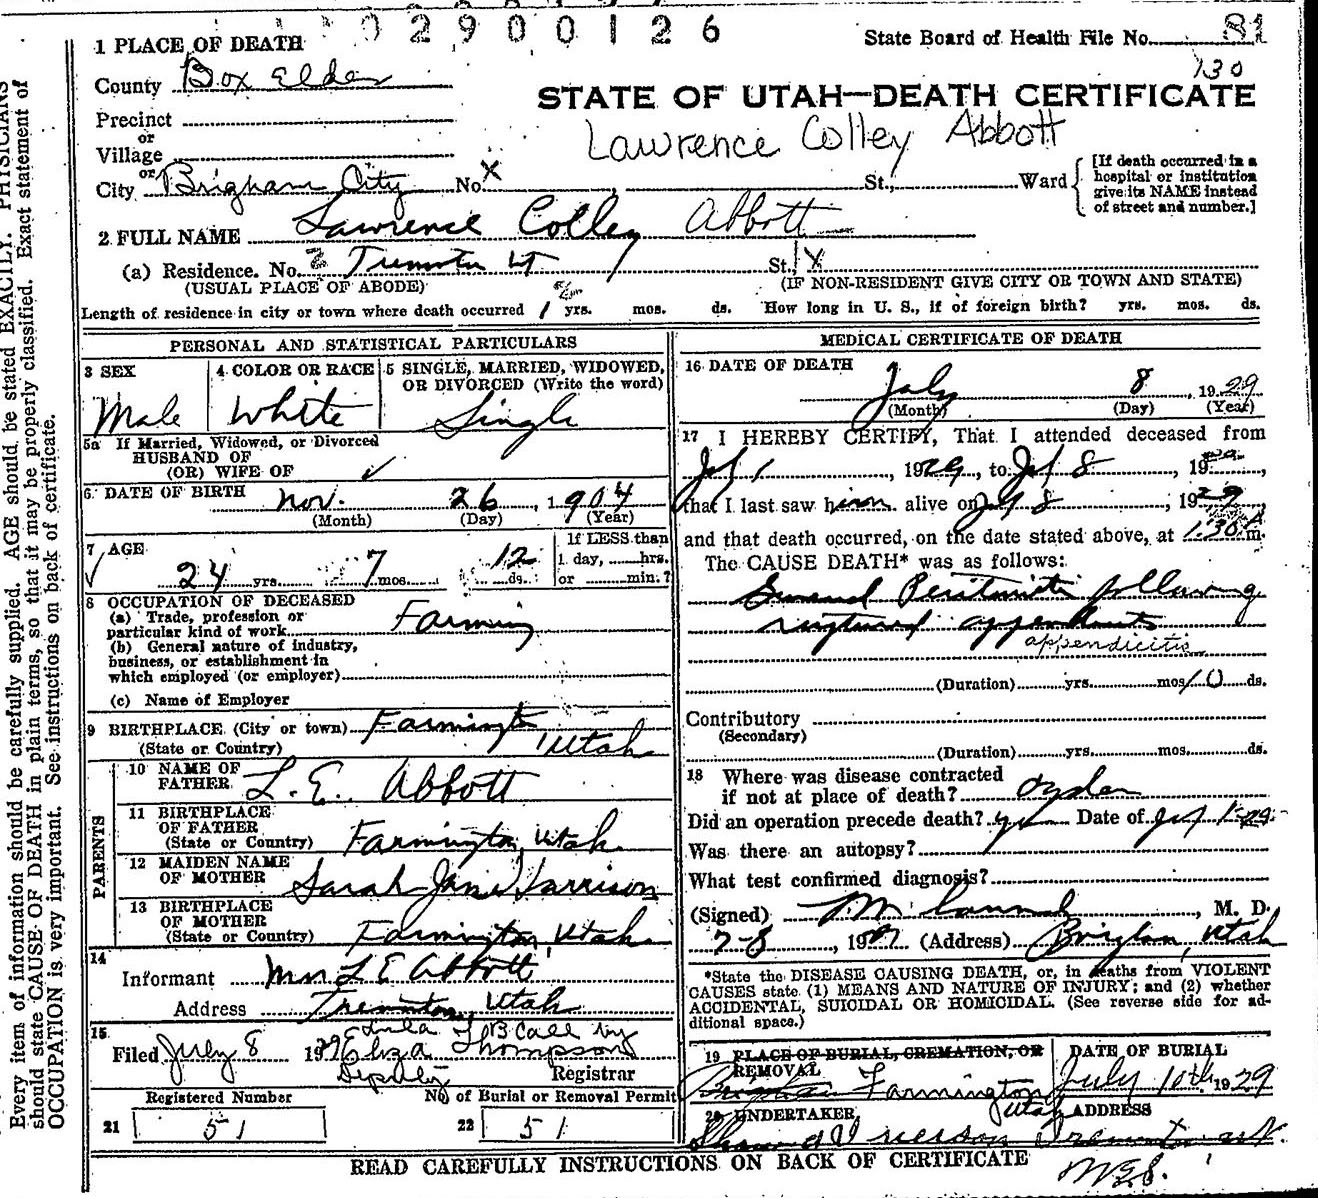 02900126
State Board of Health File No. 81
130
1 PLACE OF DEATH
County Box Elder
STATE OF UTAH—DEATH CERTIFICATE
Precinct
or
Village
Lawrence Colley Abbott
or
City Brigham City No. X St., Ward
[If death occurred in a
hospital or institution
give its NAME instead
of street and number.]
2 FULL NAME Lawrence Colley Abbott
(a) Residence. No. 2 Tremonton Ut St. X
(USUAL PLACE OF ABODE) (IF NON-RESIDENT GIVE CITY OR TOWN AND STATE)
Length of residence in city or town where death occurred yrs. mos. ds. How long in U. S., if of foreign birth? yrs. mos. ds.
PERSONAL AND STATISTICAL PARTICULARS
3 SEX
Male
4 COLOR OR RACE
White
5 SINGLE, MARRIED, WIDOWED,
OR DIVORCED (Write the word)
Single
5a If Married, Widowed, or Divorced
HUSBAND OF
(OR) WIFE OF ✓
6 DATE OF BIRTH
Nov. 26, 1904
(Month) (Day) (Year)
7 AGE
24 yrs. 7 mos. 12 ds.
If LESS than
1 day, hrs.
or min.?
8 OCCUPATION OF DECEASED
(a) Trade, profession or
particular kind of work Farming
(b) General nature of industry,
business, or establishment in
which employed (or employer)
(c) Name of Employer
9 BIRTHPLACE (City or town) Farmington
(State or Country) Utah
PARENTS
10 NAME OF
FATHER L. E. Abbott
11 BIRTHPLACE
OF FATHER
(State or Country) Farmington, Utah
12 MAIDEN NAME
OF MOTHER Sarah Jane Harrison
13 BIRTHPLACE
OF MOTHER
(State or Country) Farmington, Utah
14
Informant Mrs L E Abbott
Address Tremonton, Utah
15
Filed July 8 1929 B Call by
Eliza Thompson
Deputy Registrar
Registered Number No of Burial or Removal Permit
21 51 22 51
MEDICAL CERTIFICATE OF DEATH
16 DATE OF DEATH
July 8, 1929
(Month) (Day) (Year)
17 I HEREBY CERTIFY, That I attended deceased from
July 1, 1929, to July 8, 1929,
that I last saw him alive on July 8, 1929
and that death occurred, on the date stated above, at 1:30 A m.
The CAUSE DEATH* was as follows:
General Peritonitis following
ruptured appendicitis
appendicitis
(Duration) yrs. mos. 10 ds.
Contributory
(Secondary)
(Duration) yrs. mos. ds.
18 Where was disease contracted
if not at place of death? Ogden
Did an operation precede death? yes Date of July 1-29
Was there an autopsy?
What test confirmed diagnosis?
(Signed) M. D.
7-8, 1929 (Address) Brigham, Utah
*State the DISEASE CAUSING DEATH, or, in deaths from VIOLENT
CAUSES state (1) MEANS AND NATURE OF INJURY; and (2) whether
ACCIDENTAL, SUICIDAL OR HOMICIDAL. (See reverse side for ad-
ditional space.)
19 PLACE OF BURIAL, CREMATION, OR
REMOVAL
Brigham Farmington
Utah
DATE OF BURIAL
July 10th 1929
20 UNDERTAKER
ADDRESS
Tremonton, Ut.
READ CAREFULLY INSTRUCTIONS ON BACK OF CERTIFICATE
Every item of information should be carefully supplied. AGE should be stated EXACTLY. PHYSICIANS
should state CAUSE OF DEATH in plain terms, so that it may be properly classified. Exact statement of
OCCUPATION is very important. See instructions on back of certificate.